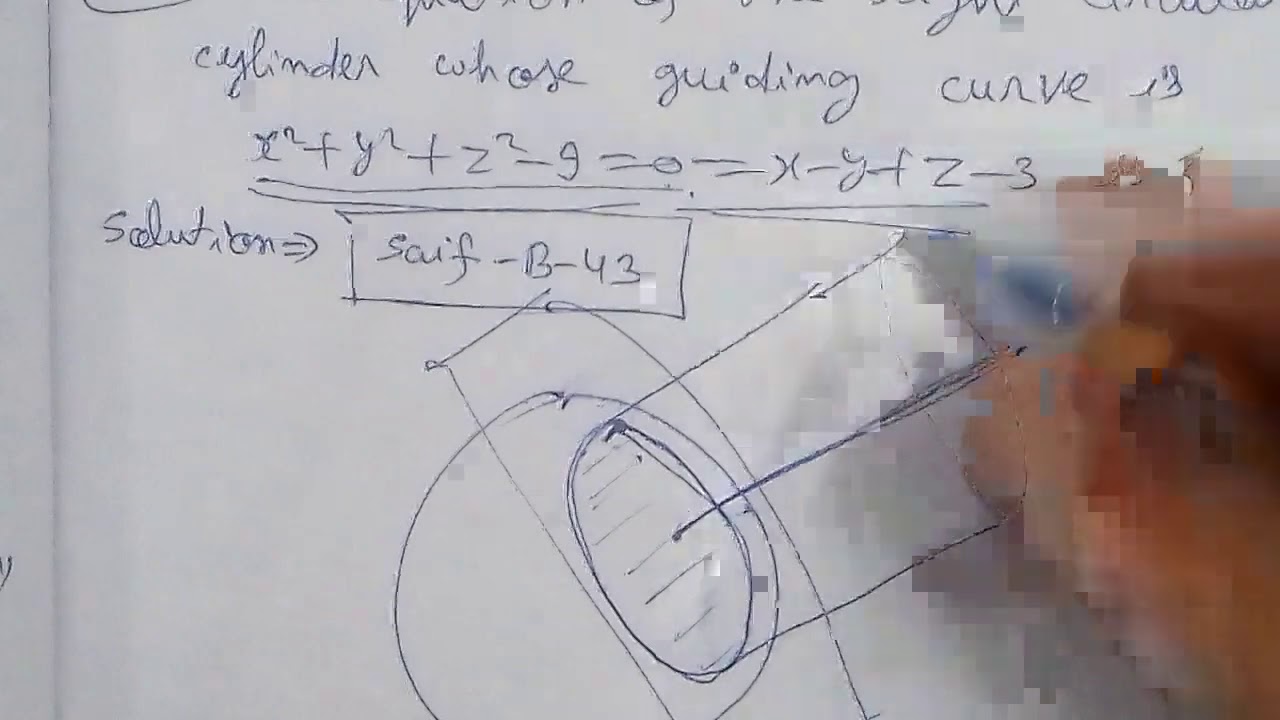 of the right
cylinder whose guiding curve is
x²+y²+z²-9=0=x-y+z-3
Solution⇒ Saif-B-43